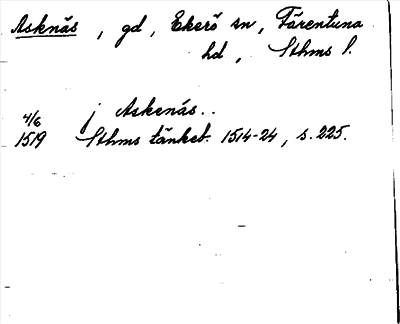 Asknäs, gd, Ekerö sn, Färentuna
hd, Sthms l.
4/6 j Askenäs..
1519 Sthms tänkeb. 1514-24, s. 225.